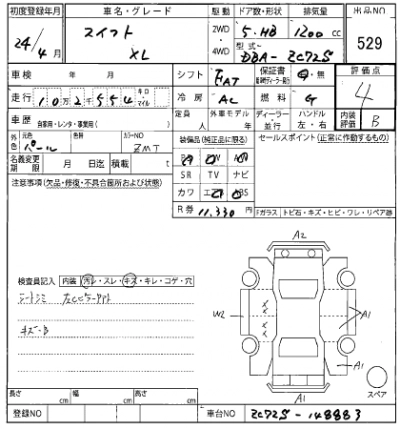 初度登録年月 車名・グレード 駆動 ドア数・形状 排気量 出品NO
24/4月 スイフト XL 2WD 4WD 5・HB 1200cc 529
型式 DBA-ZC72S
車検 年 月 シフト FAT 保証書 有・無 評価点
走行 10万2千554 キロ マイル 冷房 AC 燃料 G 4
車歴 自家用・レンタ・事業用( ) 定員 人 外車モデル 年 ディーラー 並行 ハンドル 左・右 内装評価 B
外色 元色 パール 色替 カラーNO ZMT 装備品(純正品に限る) セールスポイント(正常に作動するもの)
SR TV ナビ
名義変更期限 月 日迄 積載 t
カワ エアB ABS
注意事項(欠品・修復・不具合箇所および状態)
R券 11,330円 Fガラス トビ石・キズ・ヒビ・ワレ・リペア跡
A2
検査員記入 内装 汚レ・スレ・キズ・キレ・コゲ・穴
W2 A1
キズ
A1
A1 スペア
長さ cm 幅 cm 高さ cm
登録NO 車台NO ZC72S-148883